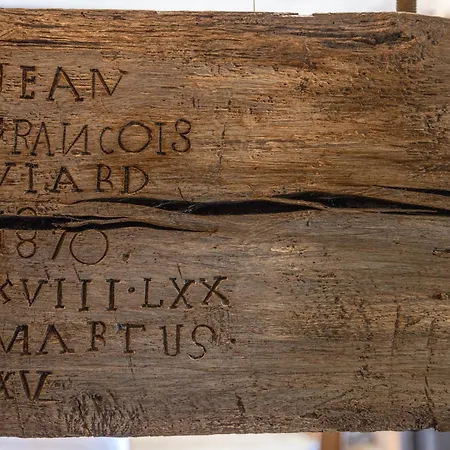 JEAN
FRANCOIS
VIARD
1870
XVIII·LXX
MARTUS
XV